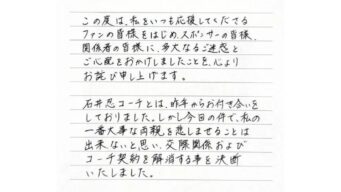 この度は、私をいつも応援してくださる
ファンの皆様をはじめ、スポンサーの皆様、
関係者の皆様に、多大なご迷惑と
ご心配をおかけしましたことを、心より
お詫び申し上げます。
石井忍コーチとは、昨年からお付き合いを
しておりました。しかし今回の件で、私の
一番大事な両親を悲しませることは
出来ないと思い、交際関係および
コーチ契約を解消する事を決断
いたしました。